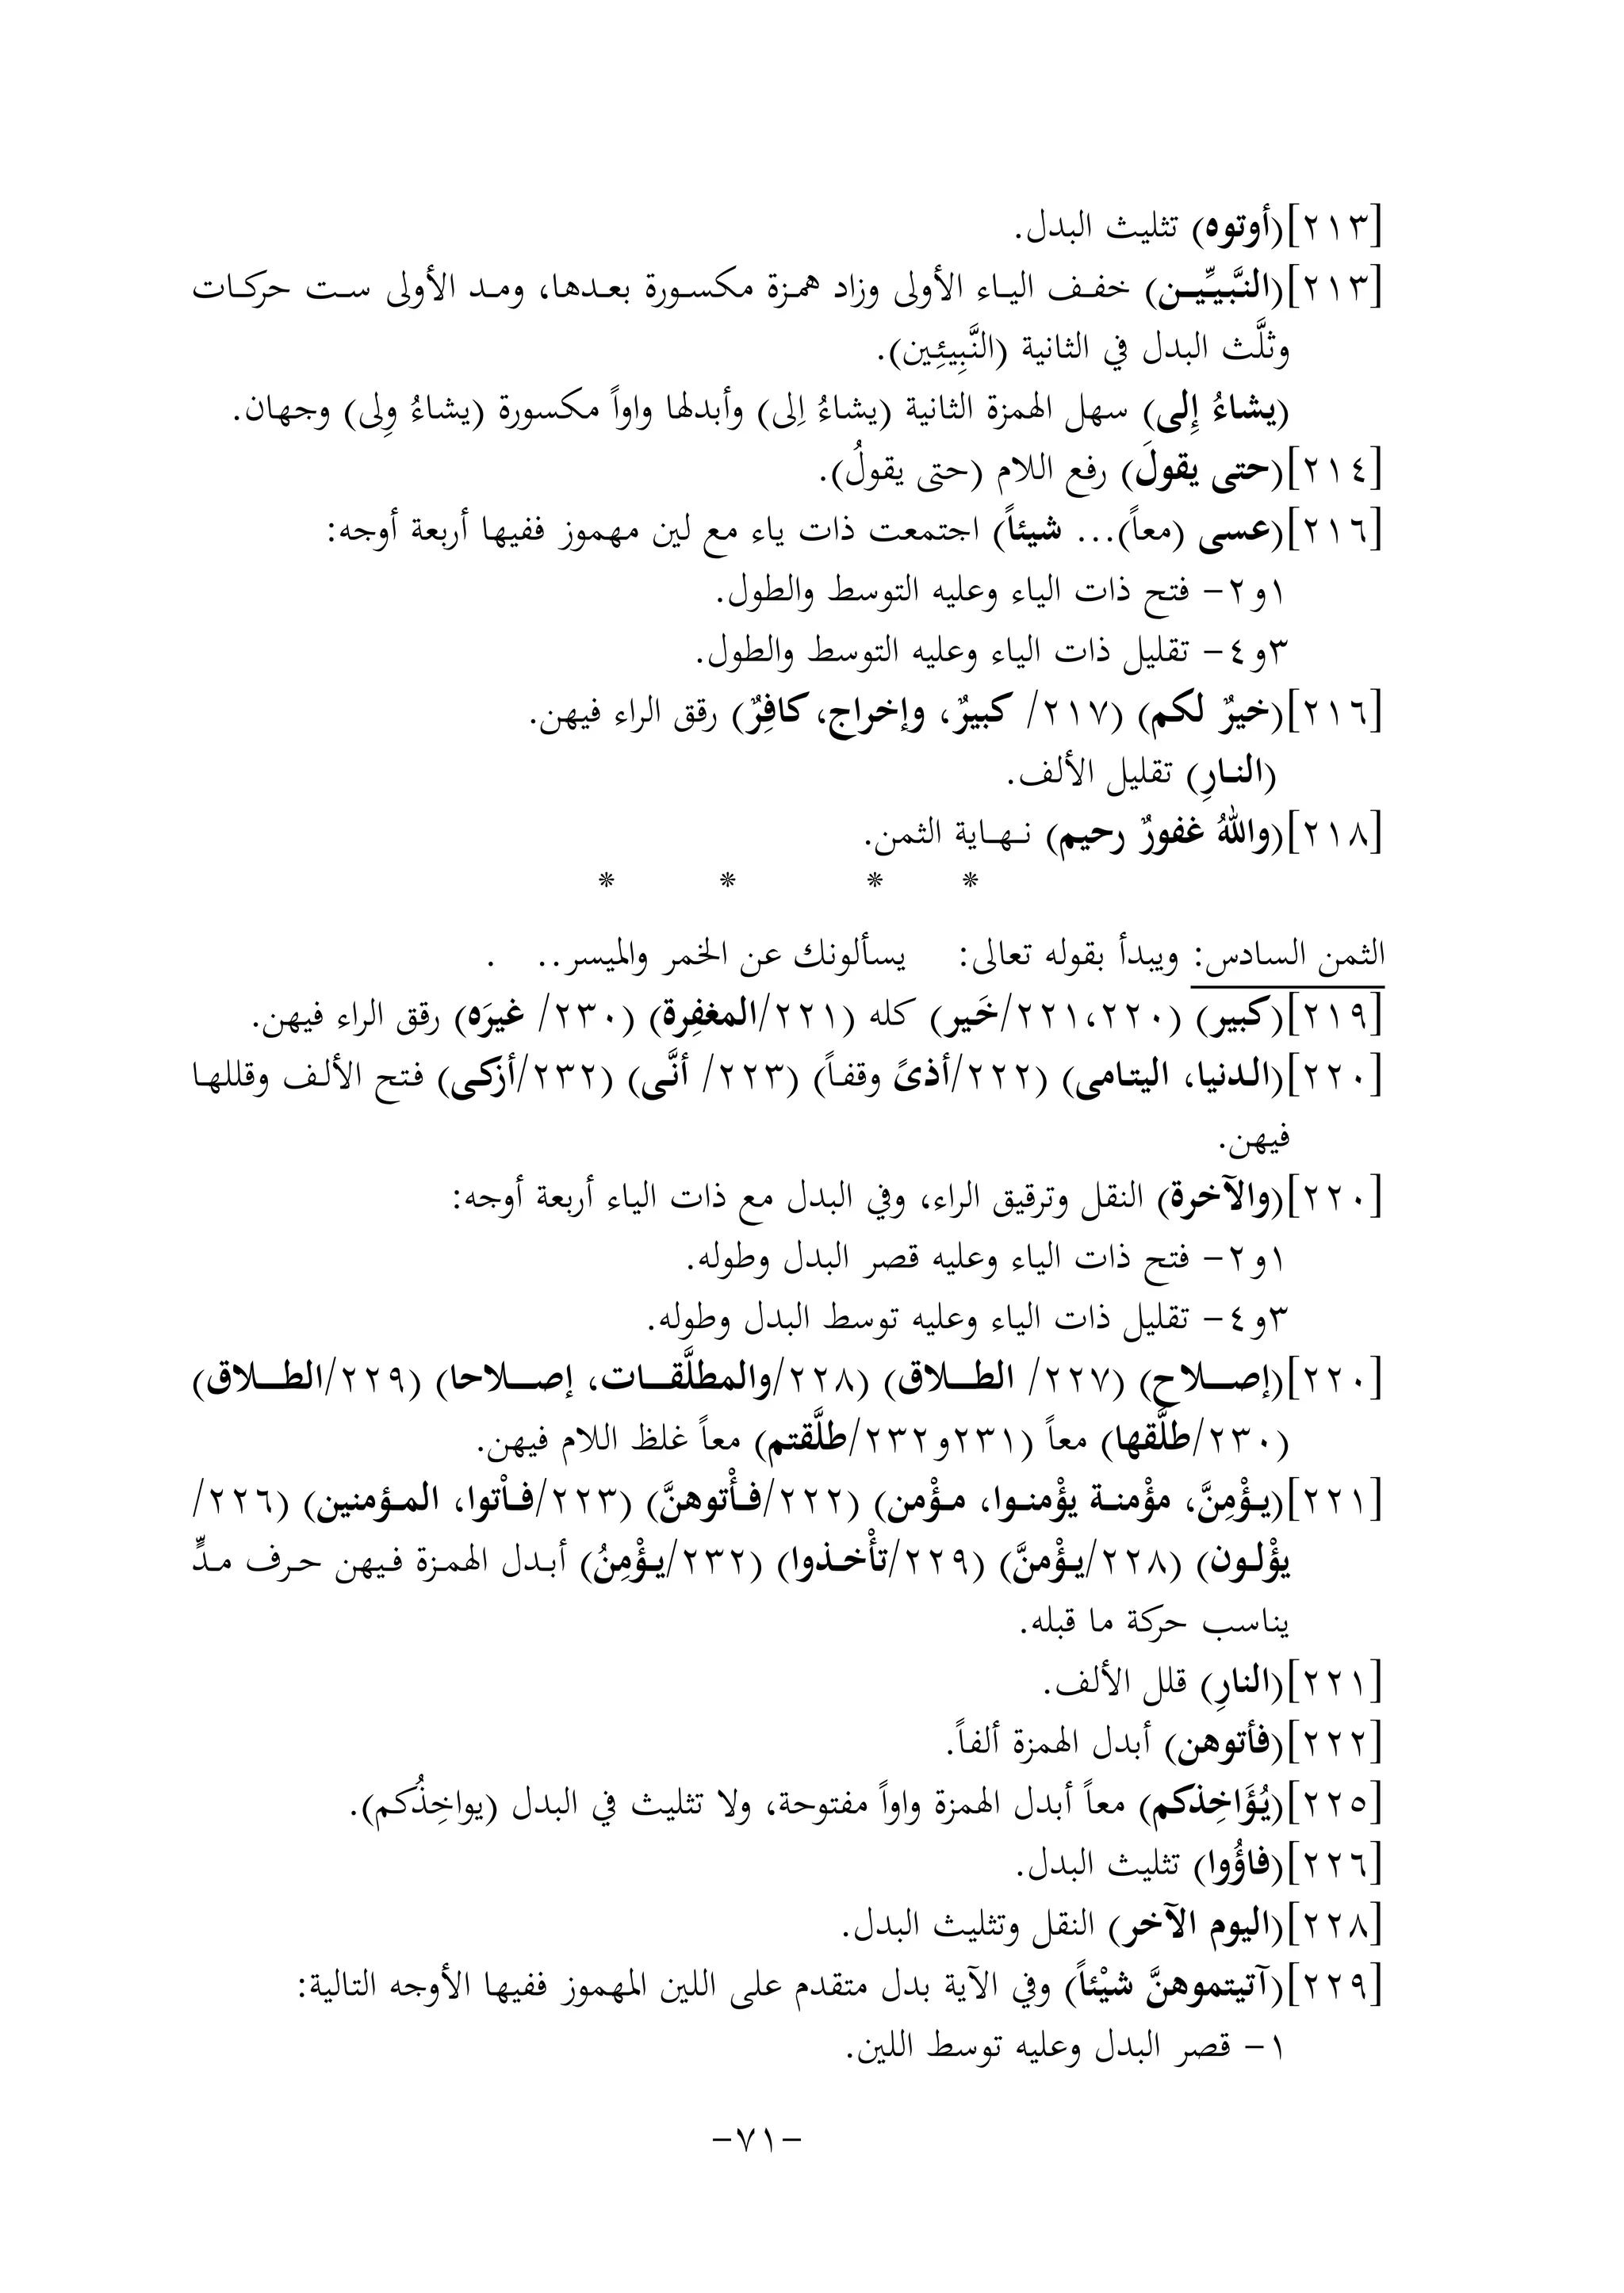 [٢١٣](أوتوه) تثليث البدل.
[٢١٣](النَّبيِّيـن) خفـف اليـاء الأولى وزاد همـزة مكسـورة بعـدها، ومـد الأولى سـت حركـات
وثلَّث البدل في الثانية (النَّبِيئِين).
(يشاءُ إِلى) سهل الهمزة الثانية (يشاءُ اِلى) وأبدلها واواً مكسورة (يشاءُ وِلى) وجهان.
[٢١٤](حتى يقولَ) رفع اللام (حتى يقولُ).
[٢١٦](عسى (معاً)... شيئاً) اجتمعت ذات ياء مع لين مهموز ففيها أربعة أوجه:
١و٢- فتح ذات الياء وعليه التوسط والطول.
٣و٤- تقليل ذات الياء وعليه التوسط والطول.
[٢١٦](خيرٌ لكم) (٢١٧/ كبيرٌ، وإخراج، كافِرٌ) رقق الراء فيهن.
(النـارِ) تقليل الألف.
[٢١٨](واللهُ غفورٌ رحيم) نـهـاية الثمن.
* * * *
الثمن السادس: ويبدأ بقوله تعالى: يسألونك عن الخمر والميسر.. .
[٢١٩](كبير) (٢٢١،٢٢٠/خَير) كله (٢٢١/المغفِرة) (٢٣٠/ غيرَه) رقق الراء فيهن.
[٢٢٠](الـدنيا، اليتـامى) (٢٢٢/أذىً وقفـاً) (٢٢٣/ أنَّـى) (٢٣٢/أزكـى) فـتح الألـف وقللهـا
فيهن.
[٢٢٠](والآخرة) النقل وترقيق الراء، وفي البدل مع ذات الياء أربعة أوجه:
١و٢- فتح ذات الياء وعليه قصر البدل وطوله.
٣و٤- تقليل ذات الياء وعليه توسط البدل وطوله.
[٢٢٠](إصـلاح) (٢٢٧/ الطـلاق) (٢٢٨/والمطلَّقـات، إصـلاحا) (٢٢٩/الطـلاق)
(٢٣٠/طلَّقها) معاً (٢٣١و٢٣٢/طلَّقتم) معاً غلظ اللام فيهن.
[٢٢١](يـؤْمِنَّ، مؤْمنـة يؤْمنـوا، مـؤْمن) (٢٢٢/فـأْتوهنَّ) (٢٢٣/فـأْتوا، المـؤمنين) (٢٢٦/
يؤْلـون) (٢٢٨/يـؤْمنَّ) (٢٢٩/تأْخـذوا) (٢٣٢/يـؤْمِنُ) أبـدل الهمـزة فـيهن حـرف مـدٍّ
يناسب حركة ما قبله.
[٢٢١](النارِ) قلل الألف.
[٢٢٢](فأتوهن) أبدل الهمزة ألفاً.
[٢٢٥](يُؤَاخِذكم) معاً أبدل الهمزة واواً مفتوحة، ولا تثليث في البدل (يواخِذُكم).
[٢٢٦](فاؤُوا) تثليث البدل.
[٢٢٨](اليوم الآخر) النقل وتثليث البدل.
[٢٢٩](آتيتموهنَّ شيْئاً) وفي الآية بدل متقدم على اللين المهموز ففيها الأوجه التالية:
١- قصر البدل وعليه توسط اللين.
-٧١-